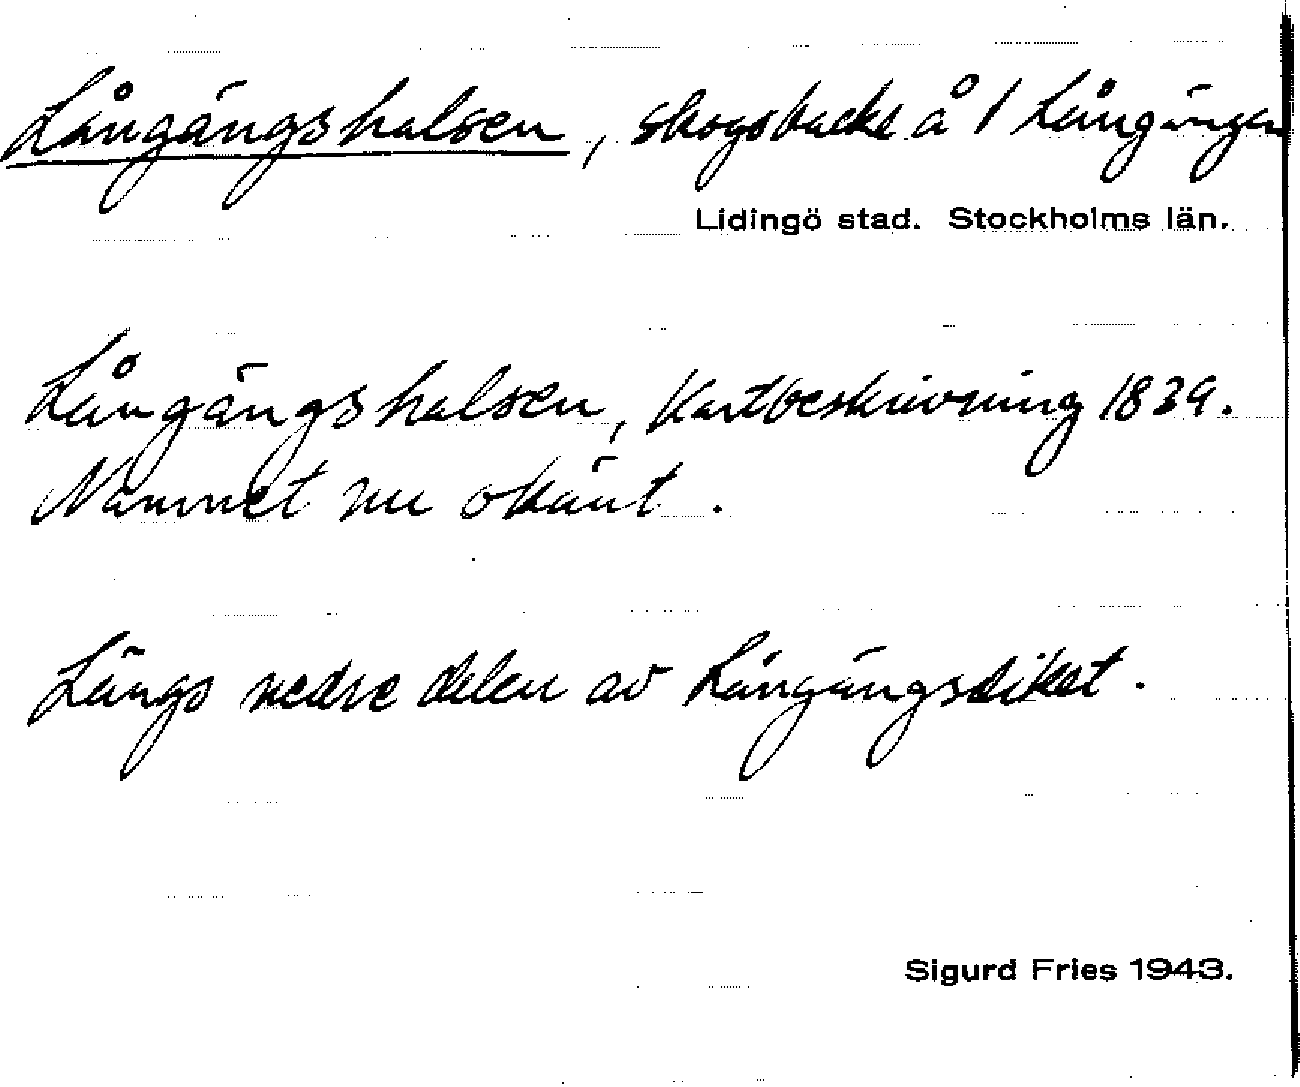 Långängshalsen, skogsbacke å 1 Långängen
Lidingö stad. Stockholms län.
Långängshalsen, Kartbeskrivning 1839.
Namnet nu okänt.
Längs nedre delen av Långängsdiket.
Sigurd Fries 1943.